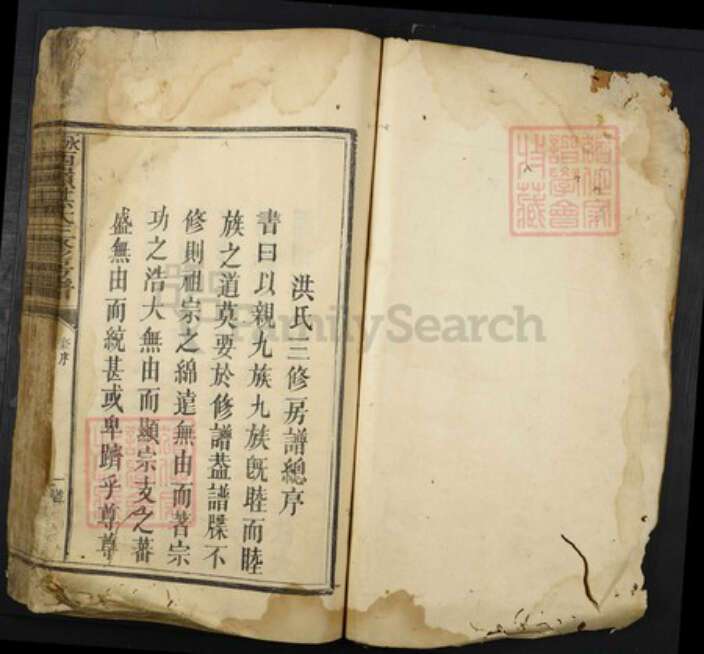 洪氏三修房譜總序
書曰以親九族九族旣睦而睦
族之道莫要於修譜葢譜牒不
修則祖宗之綿遠無由而著宗
功之浩大無由而顯宗支之蕃
盛無由而統甚或卑躋乎尊尊
序
FamilySearch